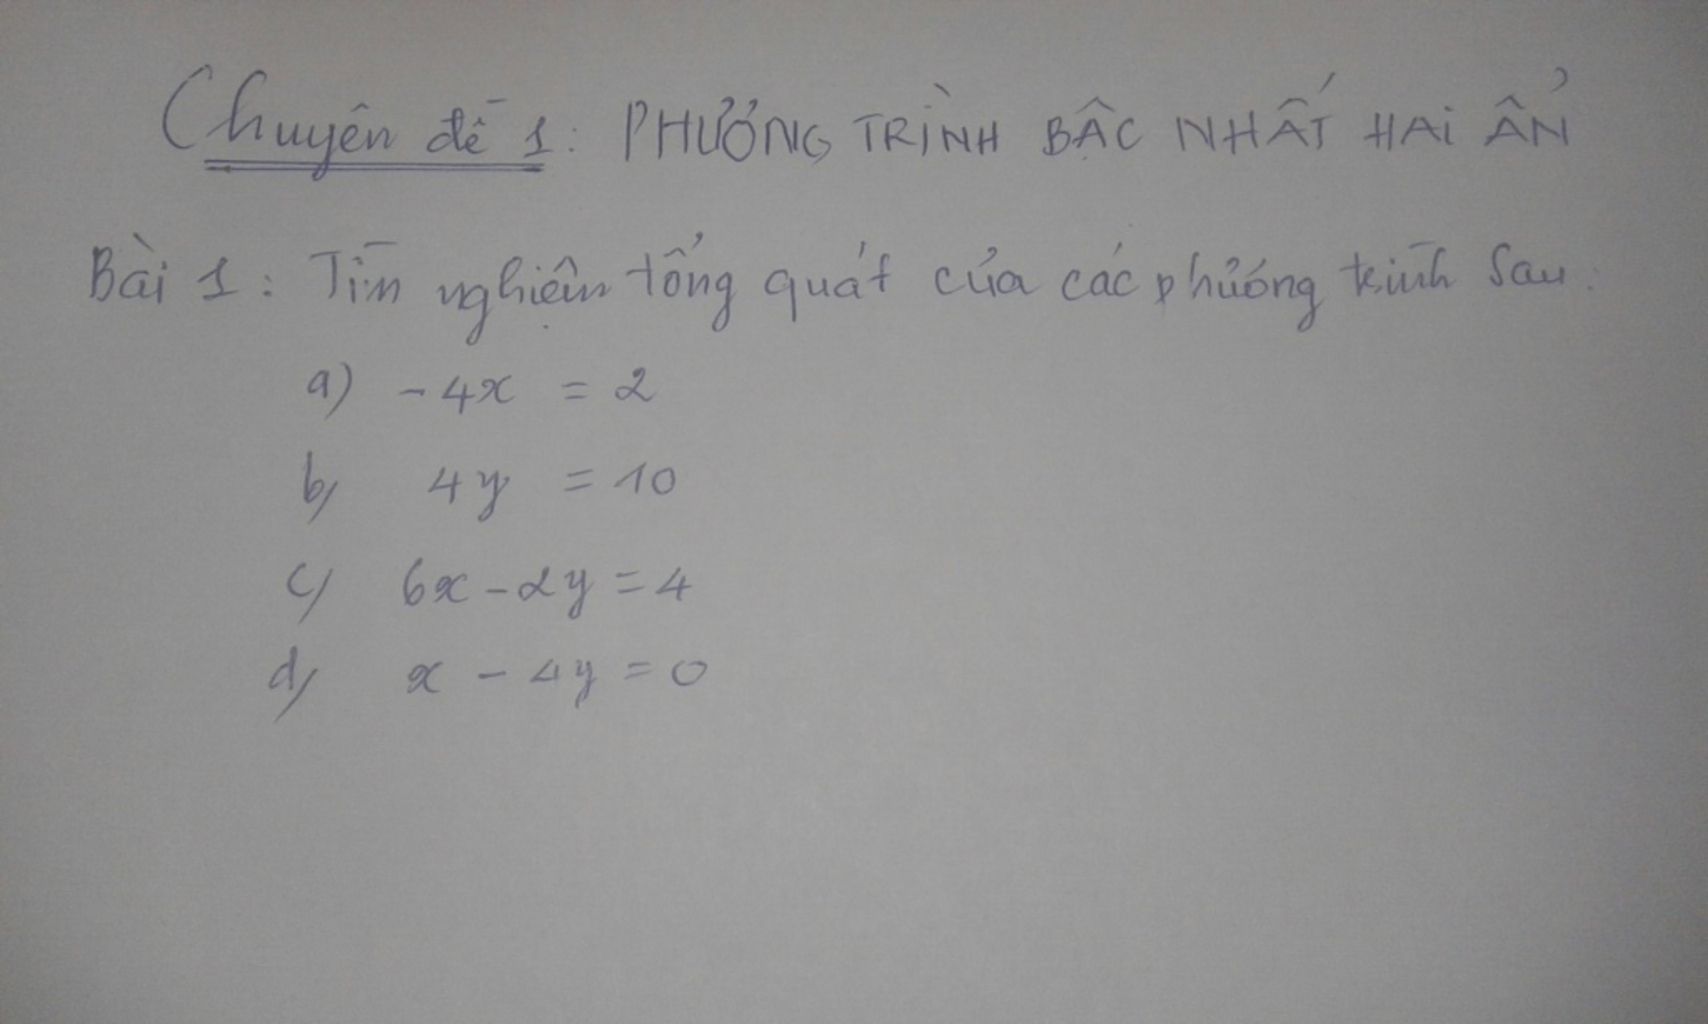 Chuyên đề 1: PHƯƠNG TRÌNH BẬC NHẤT HAI ẨN
Bài 1: Tìm nghiệm tổng quát của các phương trình sau:
a) -4x = 2
b) 4y = 10
c) 6x - 2y = 4
d) x - 4y = 0